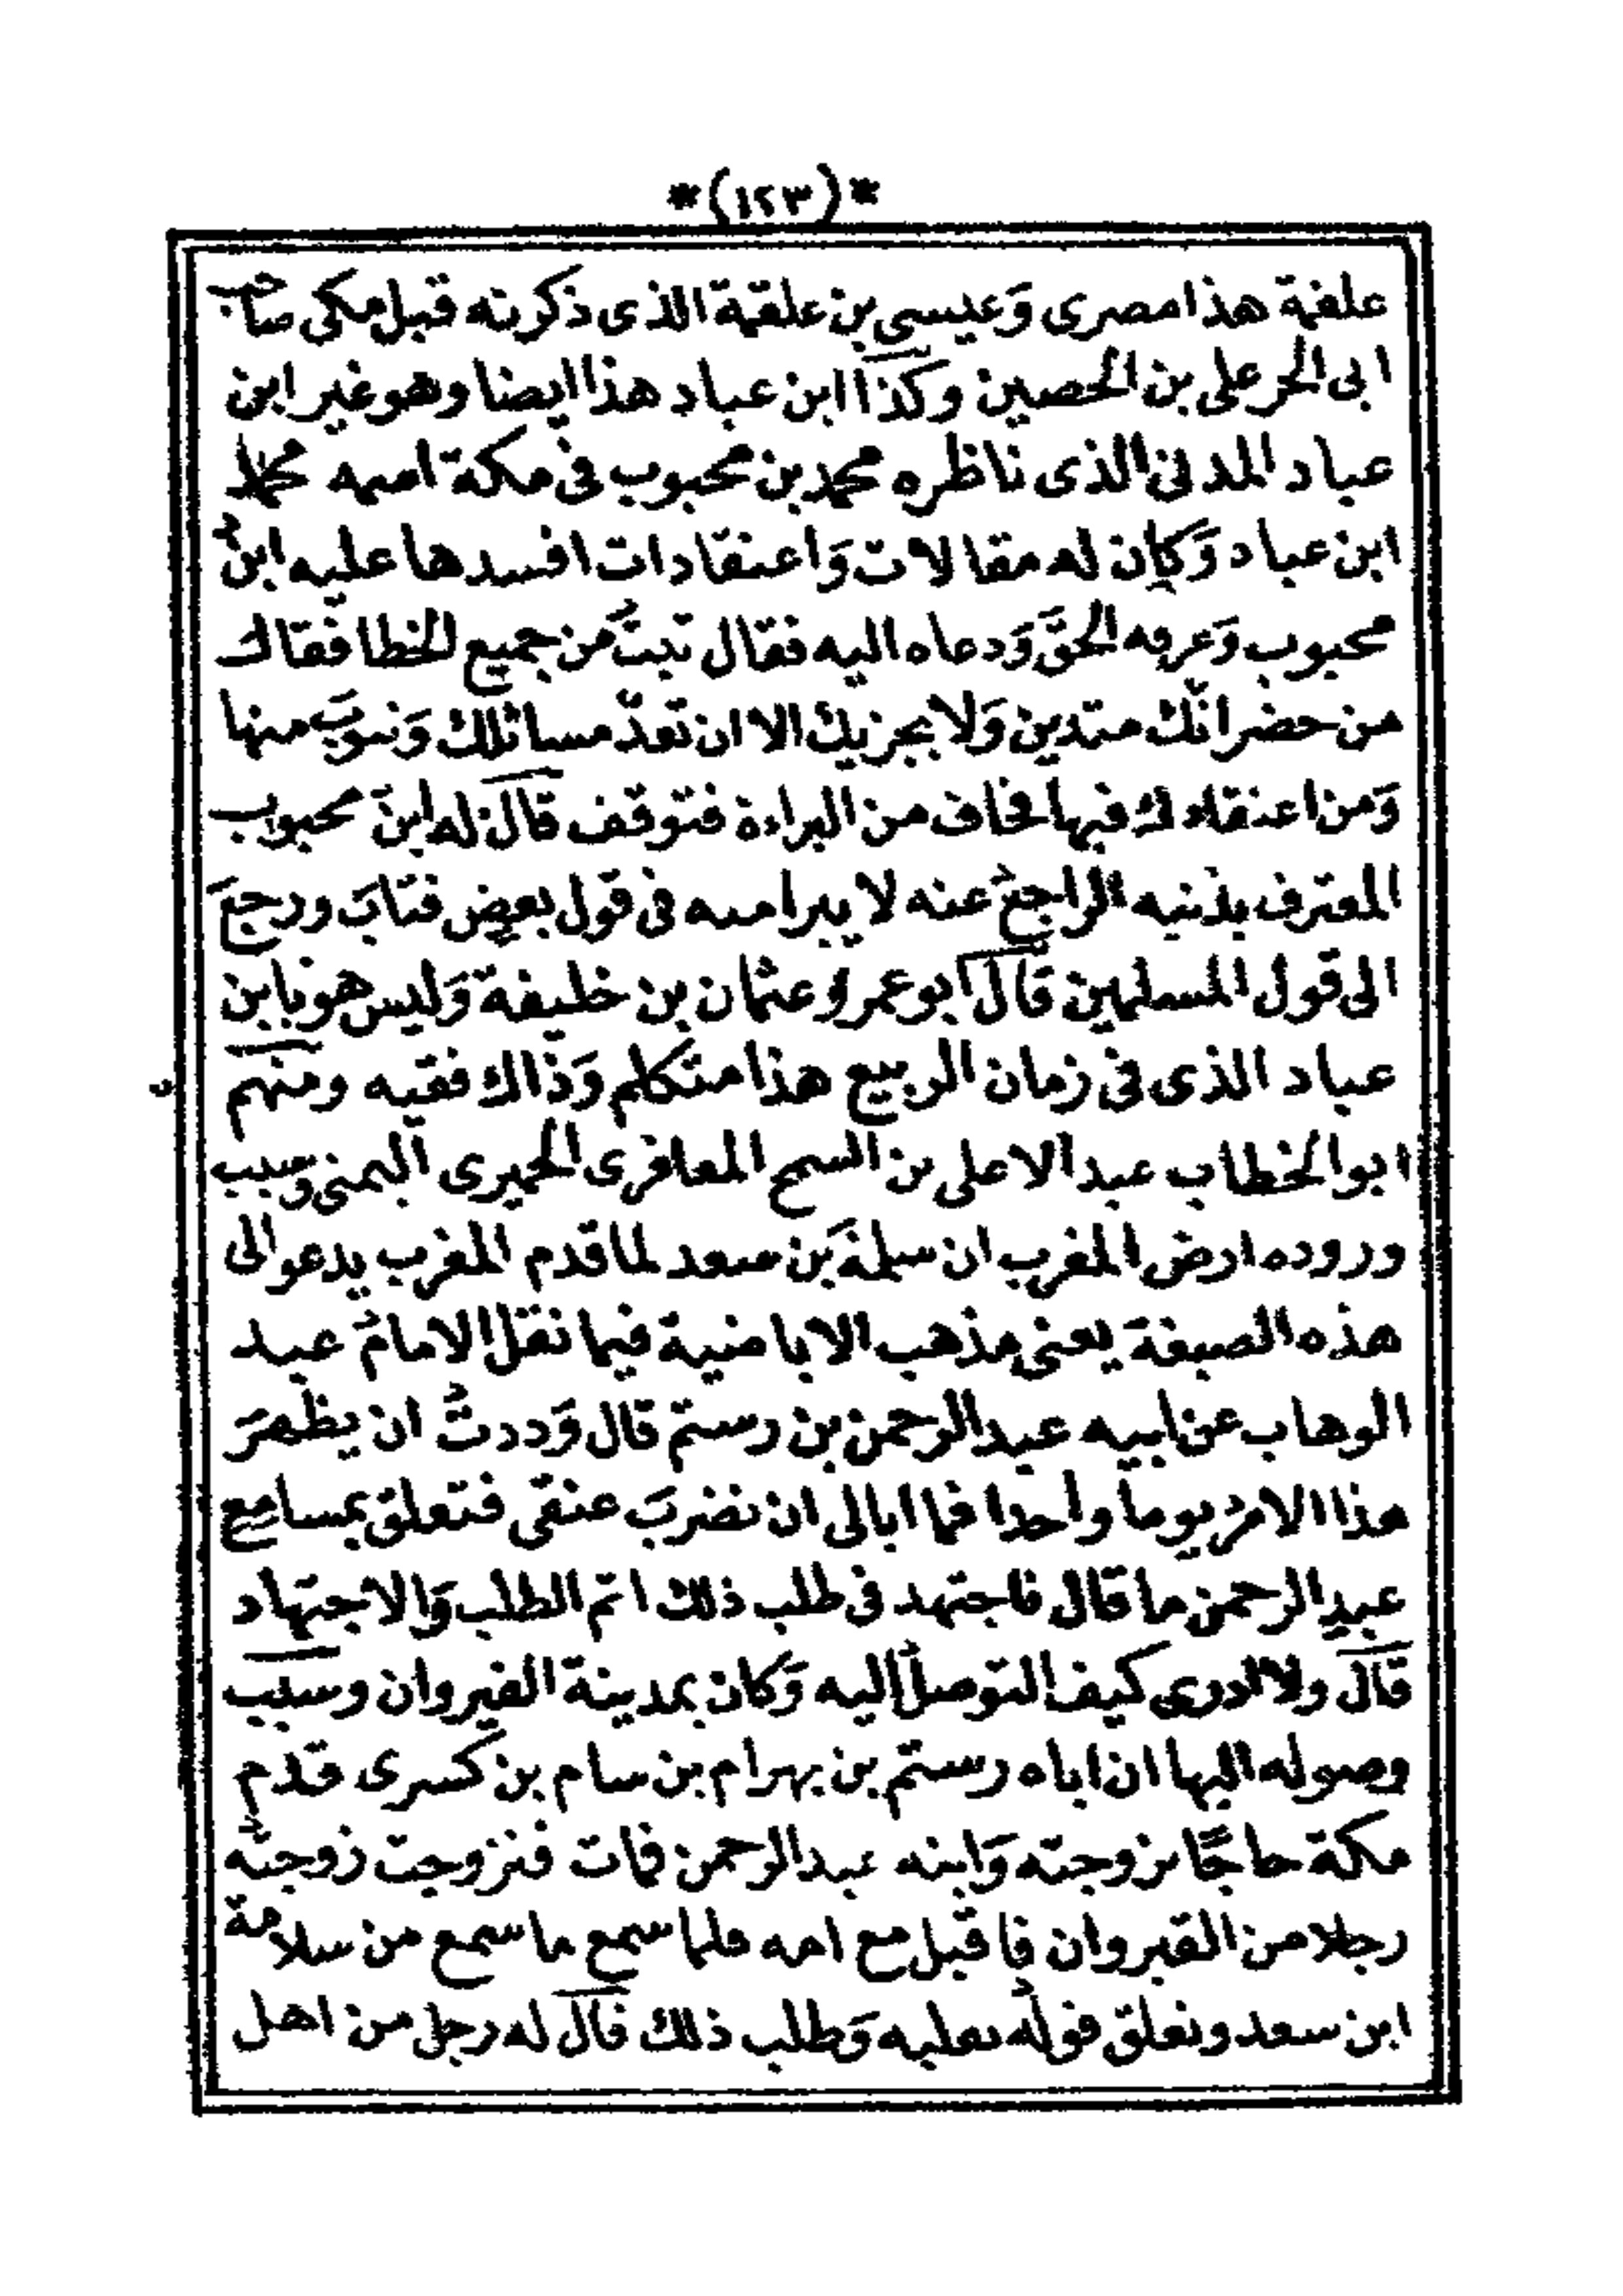 *(١٢٣)*
علقمة هذا مصرى وَعيسى بن علقمة الذى ذكرته قبل مكى صاحب
ابى الحر على بن الحصين وكذا ابن عباد هذا ايضا وهو غير ابن
عباد المدنى الذى ناظره محمد بن محبوب فى مكة اسمه محمد
ابن عباد وَكان له مقالات وَاعتقادات افسدها عليه ابنُ
محبوب وَعرفه الحقَّ وَدعاه اليه فقال تبتُ من جميع الخطا فقال
من حضر انّك متدين وَلا يجزيك الا ان تعدّ مسائلك وَتتوبَ منها
وَمن اعتقادك فيها فخاف من البراءة فتوقف قال له ابن محبوب
المعترف بذنبه الراجع عنه لا يبرا منه فى قول بعض فتابَ ورجعَ
الى قول المسلمين قال ابو عمرو عثمان بن خليفة وَليس هو بابن
عباد الذى فى زمان الربيع هذا متكلم وَذاك فقيه ومنهم
ابو الخطاب عبد الاعلى بن السمح المعافرى الحميرى اليمنى وسبب
وروده ارض المغرب ان سلمةَ بن سعد لما قدم المغرب يدعو الى
هذه الصبغة يعنى مذهب الاباضية فيما نقل الامامُ عبد
الوهاب عن ابيه عبد الرحمن بن رستم قال وَددتُ ان يظهرَ
هذا الامر يوما واحدا فما ابالى ان تضربَ عنقى فتعلق بمسامع
عبد الرحمن ما قال فاجتهد فى طلب ذلك اتم الطلب وَالاجتهاد
قال ولا ادرى كيف التوصلُ اليه وَكان بمدينة القيروان وسبب
وصوله اليها ان اباه رستم بن بهرام بن سام بن كسرى قدم
مكة حاجًا بزوجته وَابنه عبد الرحمن فمات فتزوجت زوجتُه
رجلا من القيروان فاقبل مع امه فلما سمع ما سمع من سلامة
ابن سعد وتعلق قولُه بقلبه وَطلب ذلك قال له رجل من اهل